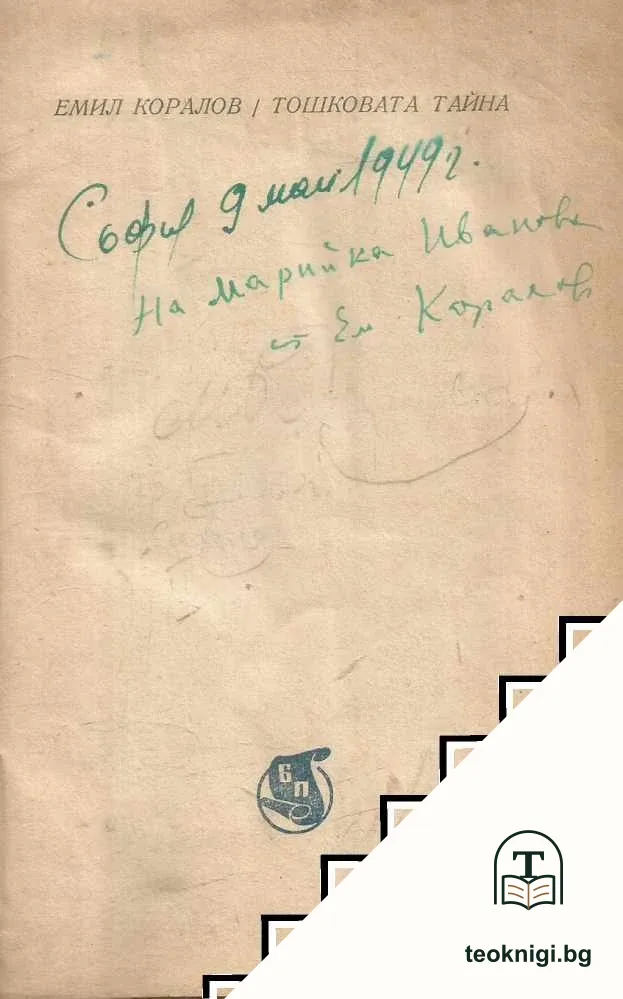 ЕМИЛ КОРАЛОВ / ТОШКОВАТА ТАЙНА
София 9 май 1949 г.
На Марийка Иванова
от Ем Коралов
БП
T
teoknigi.bg